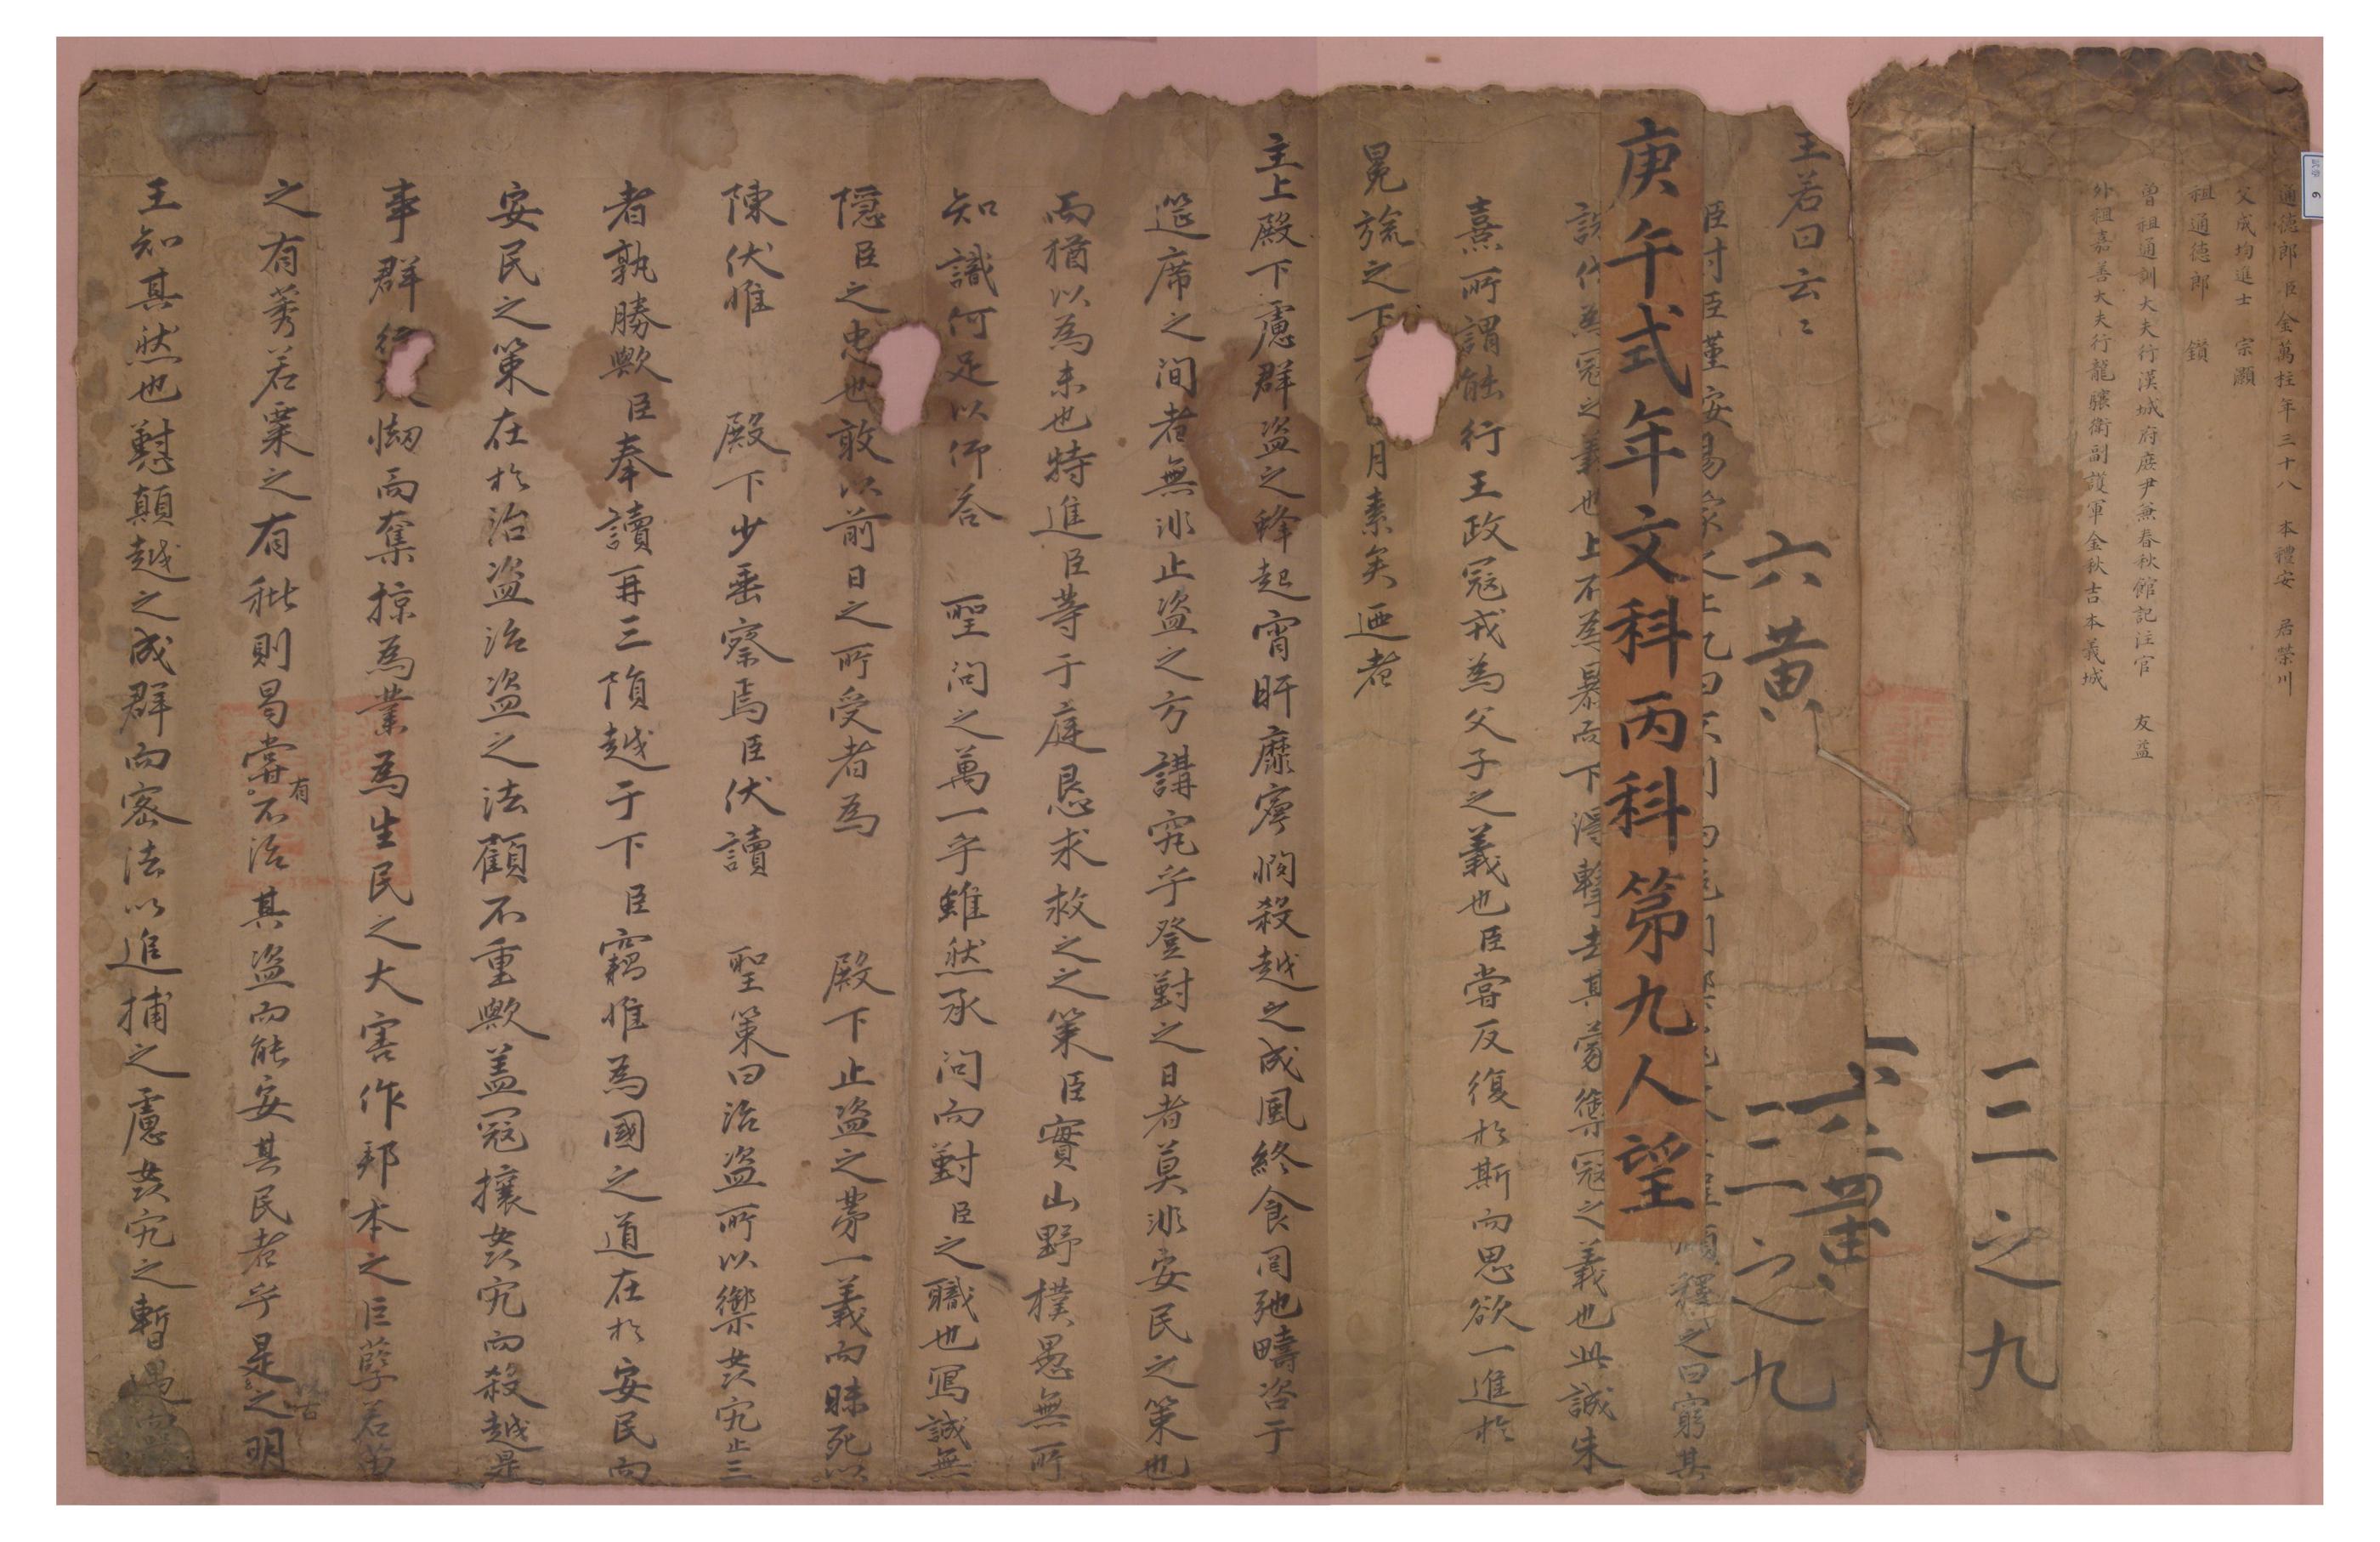 通德郎臣金萬柱年三十八 本禮安 居榮川
父成均進士 宗灝
祖通德郎 鑽
曾祖通訓大夫行漢城府庶尹兼春秋館記注官 友益
外祖嘉善大夫行龍驤衛副護軍金秋吉本義城
三之九
六黃
王若曰云〻
六黃
三之九
臣對臣謹按易 釋之曰窮其
庚午式年文科丙科第九人望
爲寇之事也上不爲暴而下得擊去其蒙禦寇之義也此誠朱
熹所謂能行王政寇戎為父子之義也臣嘗反復於斯而思欲一進於
冕旒之下 月素矣迺者
主上殿下慮群盜之蜂起宵旰靡寧憫殺越之成風終食罔弛疇咨于
筵席之间者無非止盜之方講究乎登對之日者莫非安民之策也
而猶以為未也特進臣等于庭恳求救之之策臣實山野樸愚無所
知識何足以仰答 聖问之萬一乎雖然承问而對臣之職也寫誠無
隱臣之忠也敢以前日之所受者為 殿下止盜之第一義而昧死以
陳伏惟 殿下少垂察焉臣伏讀 聖策曰治盜所以禦姦宄止三
者孰勝歟臣奉讀再三隕越于下臣竊惟為國之道在於安民而
安民之策在於治盜治盜之法顧不重歟盖寇攘姦宄而殺越是
事群 刼而奪掠為業為生民之大害作邦本之巨孽若苗
之有莠若粟之有秕則曷嘗有不治其盜而能安其民者乎是以古之明
王知其然也懟顛越之成群而密法以進捕之慮姦宄之暫遇而